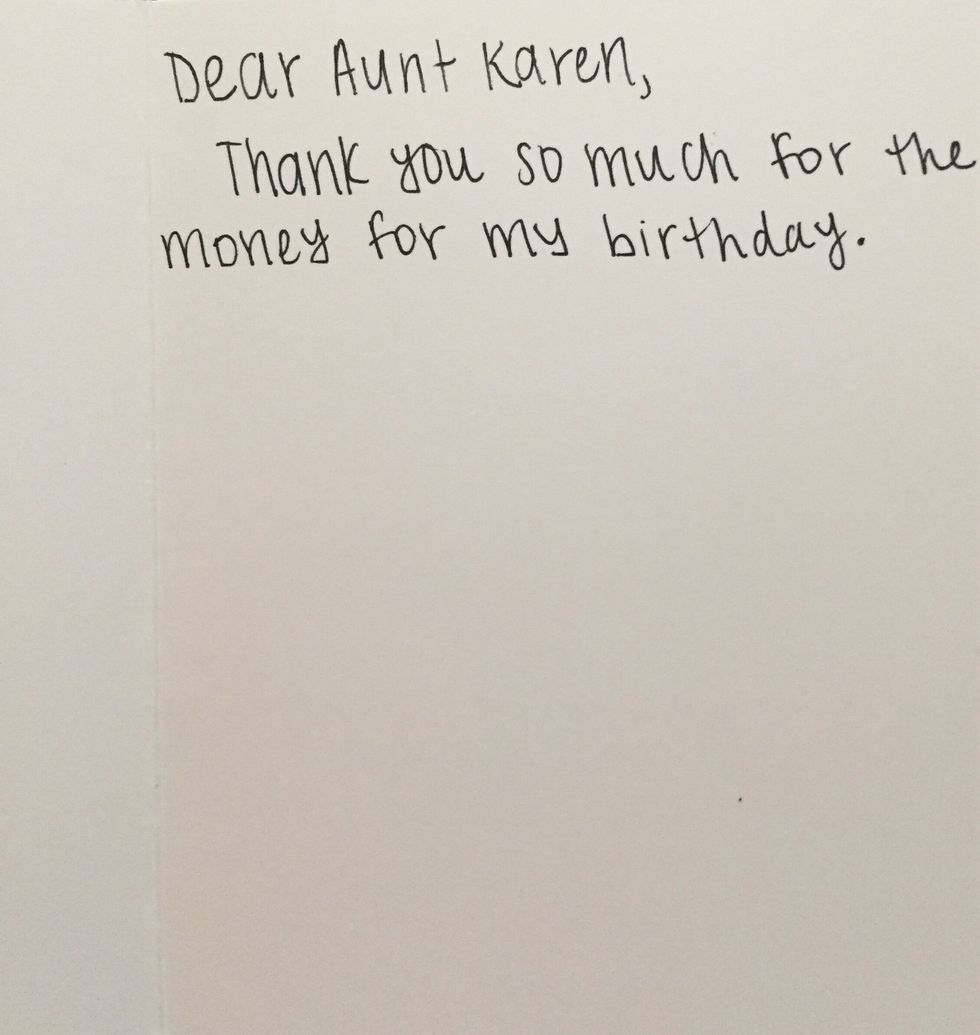 Dear Aunt Karen,
Thank you so much for the
money for my birthday.